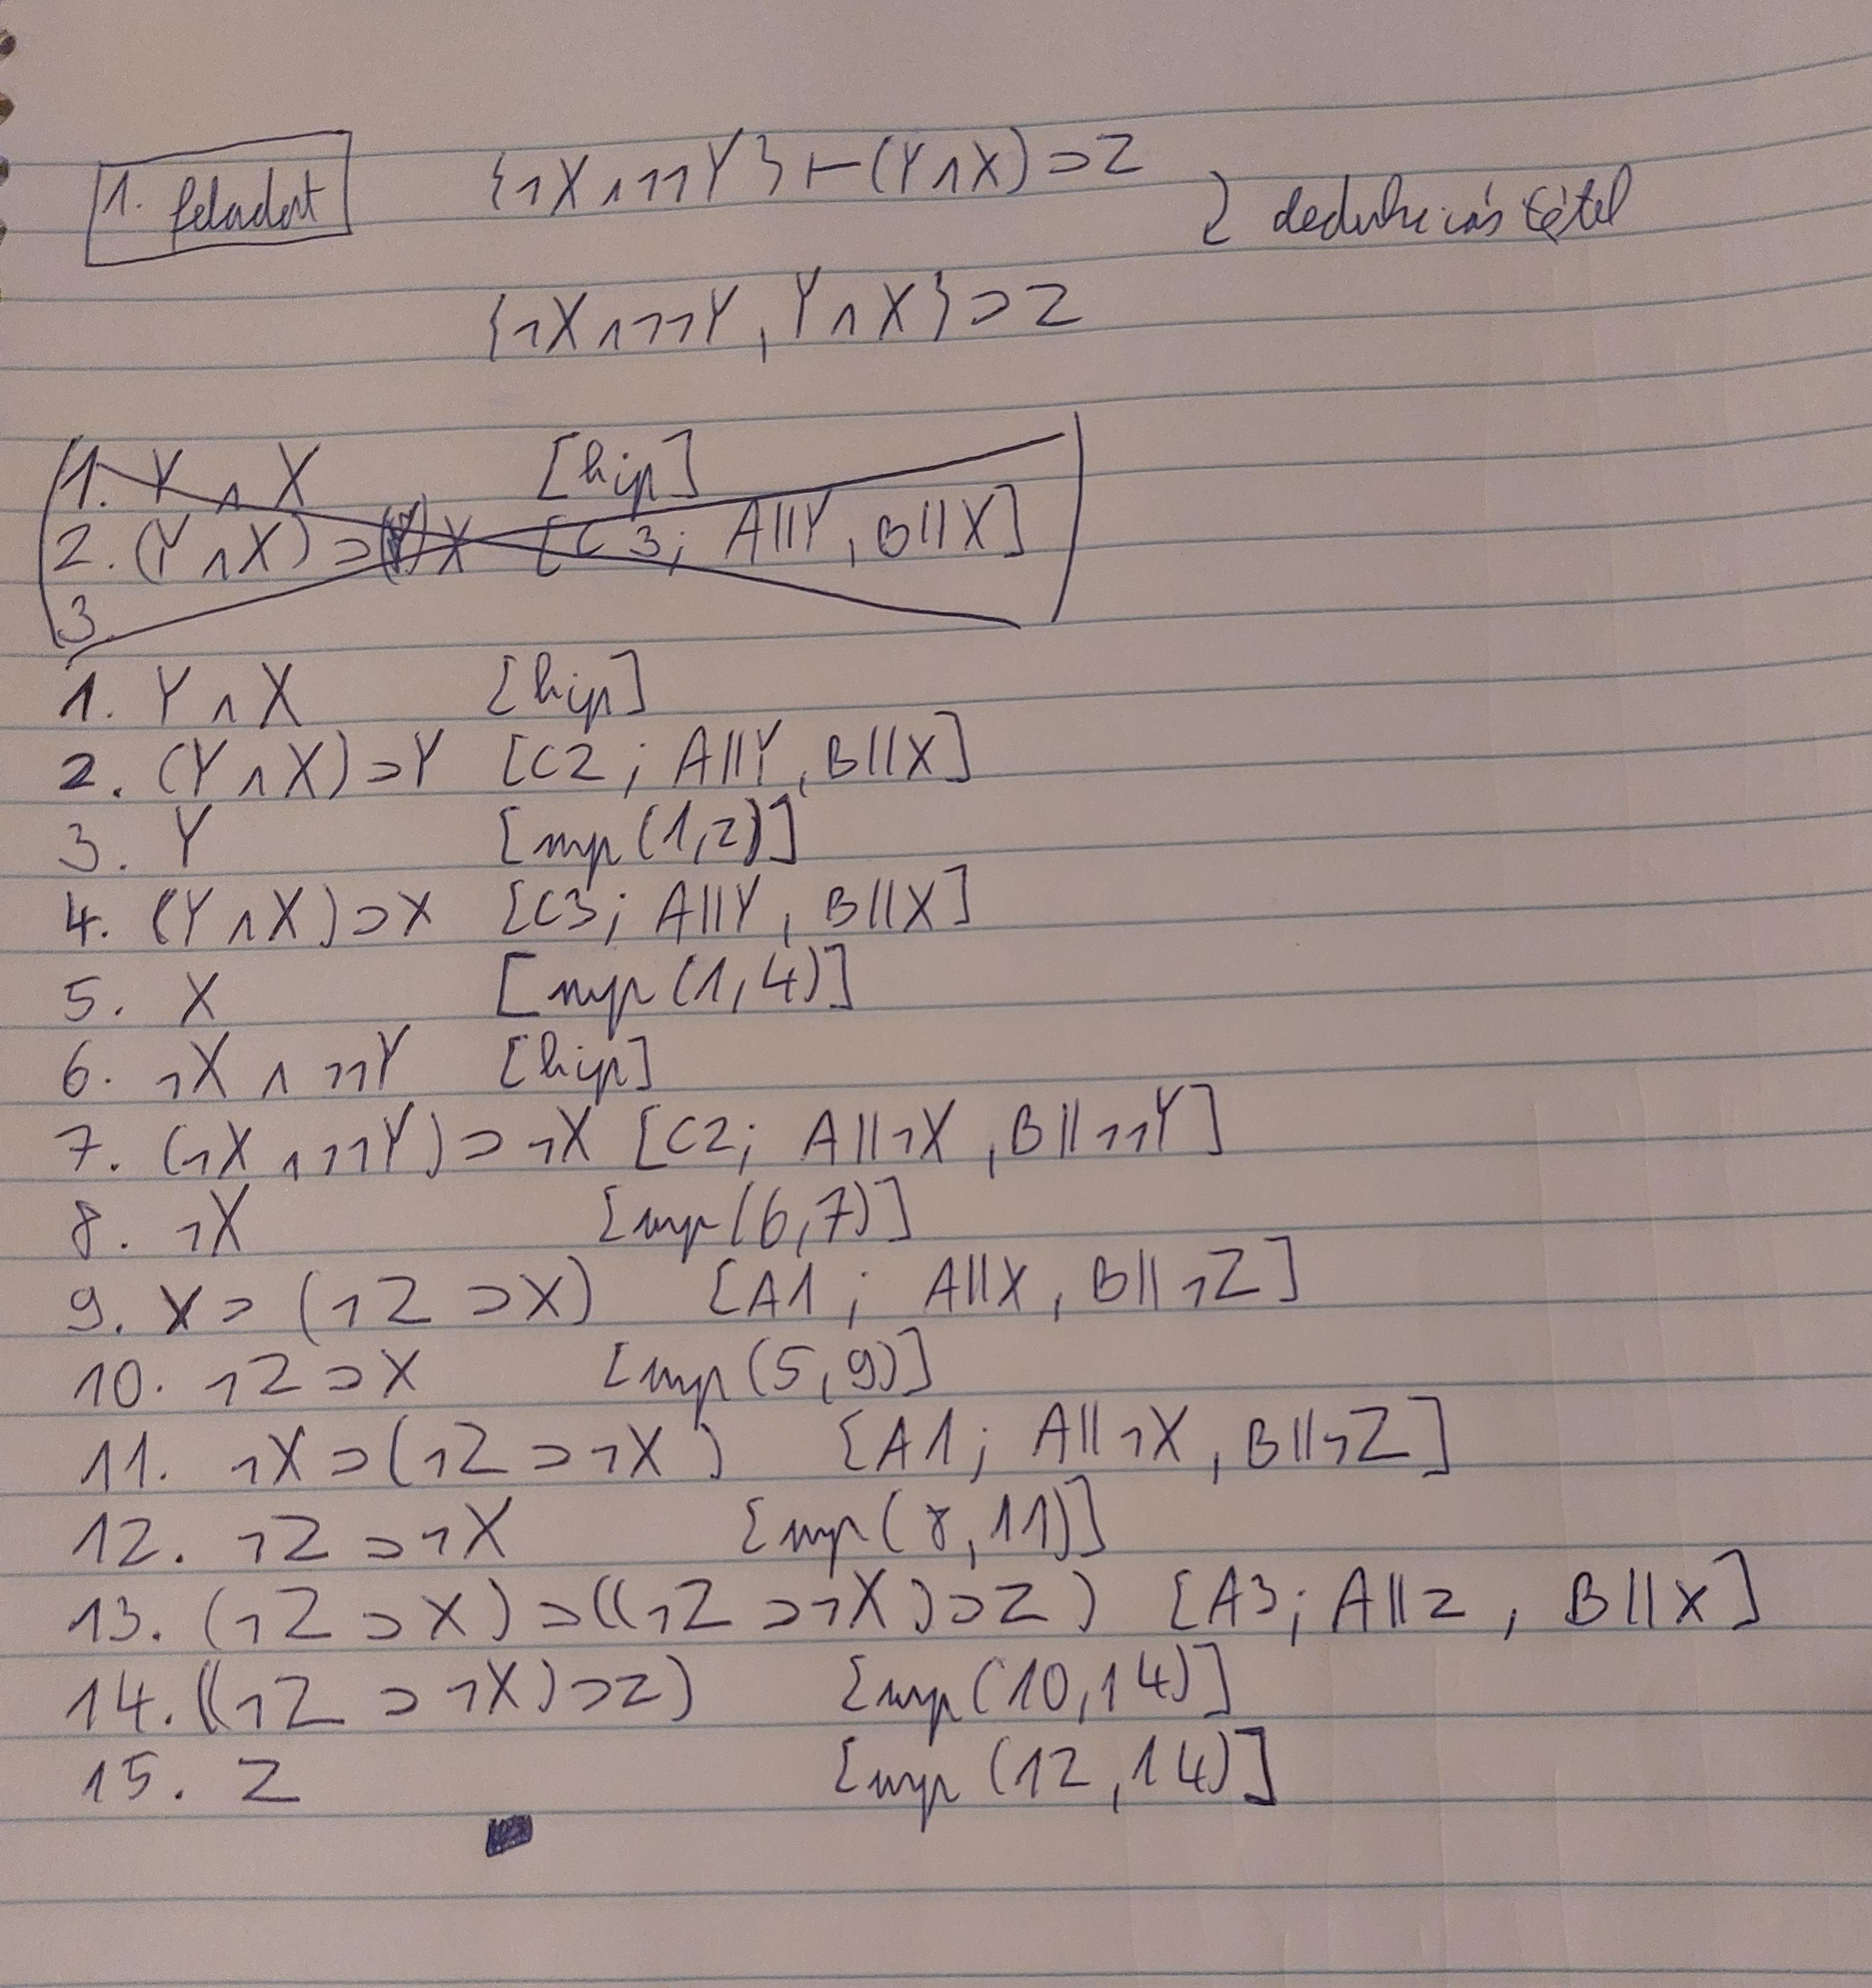 1. feladat {¬X∧¬¬Y} ⊢ (Y∧X)⊃Z
dedukciós tétel
{¬X∧¬¬Y, Y∧X}⊃Z
1. Y∧X [hip]
2. (Y∧X)⊃ X [C3; A||Y, B||X]
3.
1. Y∧X [hip]
2. (Y∧X)⊃Y [C2; A||Y, B||X]
3. Y [mp(1,2)]
4. (Y∧X)⊃X [C3; A||Y, B||X]
5. X [mp(1,4)]
6. ¬X∧¬¬Y [hip]
7. (¬X∧¬¬Y)⊃¬X [C2; A||¬X, B||¬¬Y]
8. ¬X [mp(6,7)]
9. X⊃(¬Z⊃X) [A1; A||X, B||¬Z]
10. ¬Z⊃X [mp(5,9)]
11. ¬X⊃(¬Z⊃¬X) [A1; A||¬X, B||¬Z]
12. ¬Z⊃¬X [mp(8,11)]
13. (¬Z⊃X)⊃((¬Z⊃¬X)⊃Z) [A3; A||Z, B||X]
14. ((¬Z⊃¬X)⊃Z) [mp(10,14)]
15. Z [mp(12,14)]